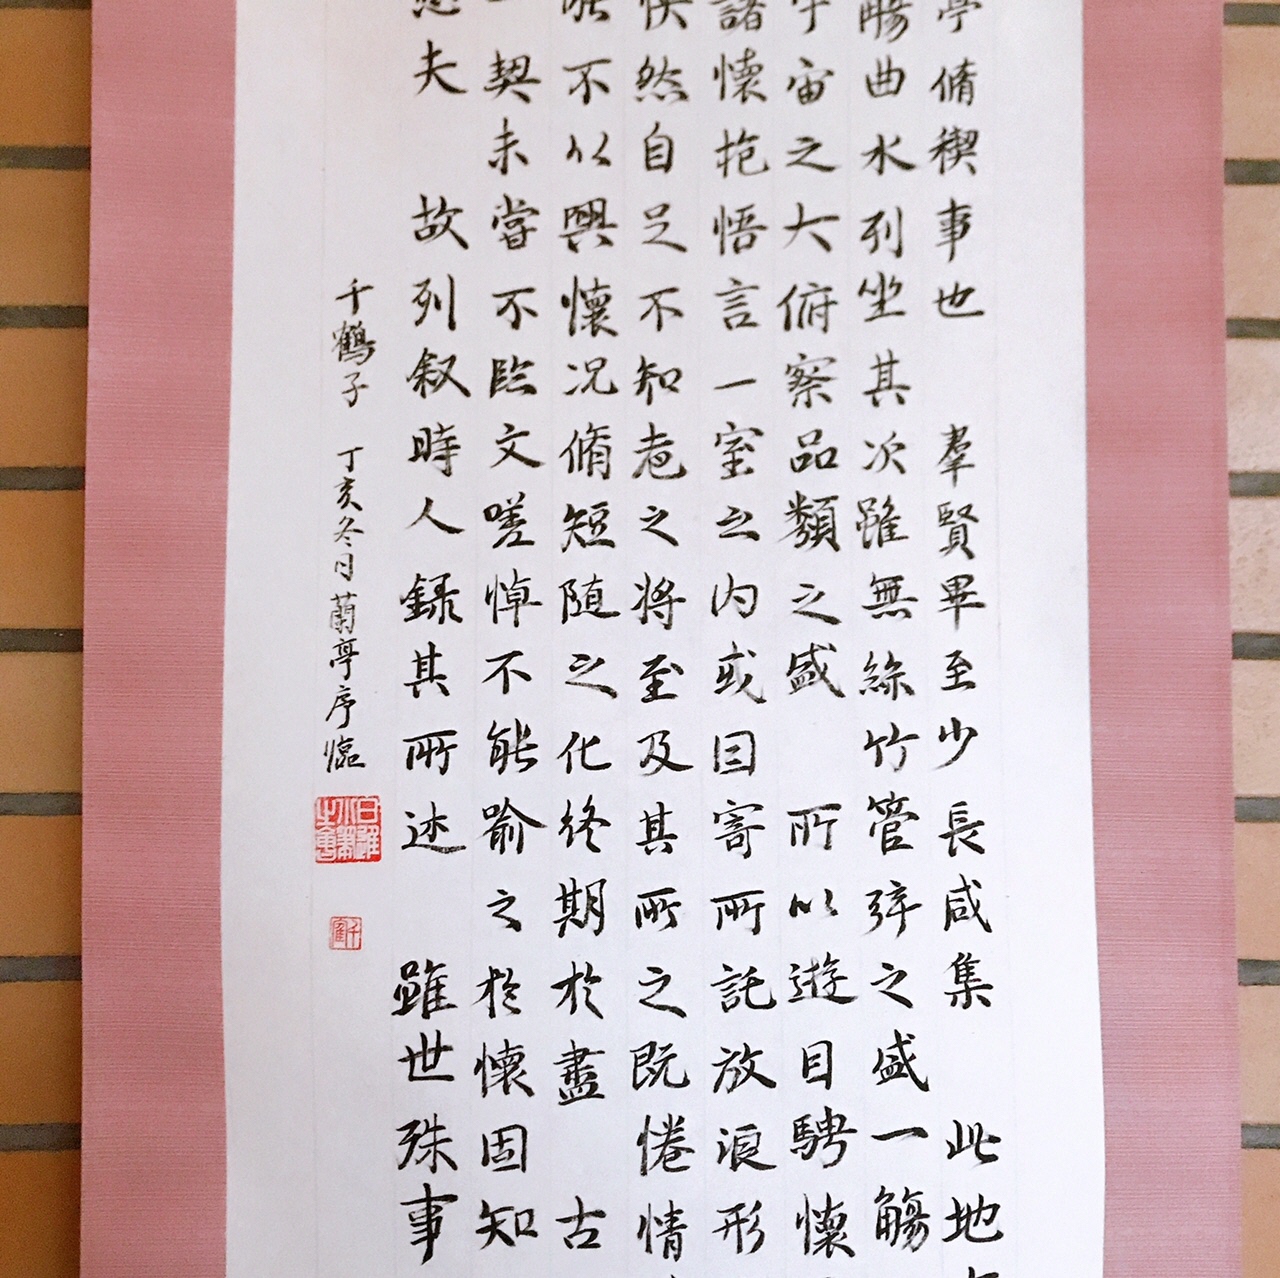 亭脩稧事也 羣賢畢至少長咸集 此地
觴曲水列坐其次雖無絲竹管弦之盛一觴
宇宙之大俯察品類之盛 所以遊目騁懷
諸懷抱悟言一室之内或因寄所託放浪形
快然自足不知老之将至及其所之既惓情
能不以興懷况脩短随之化終期於盡 古
一契未甞不臨文嗟悼不能喻之於懷固知
悲夫 故列叙時人録其所述 雖世殊事
千鶴子 丁亥冬日蘭亭序臨